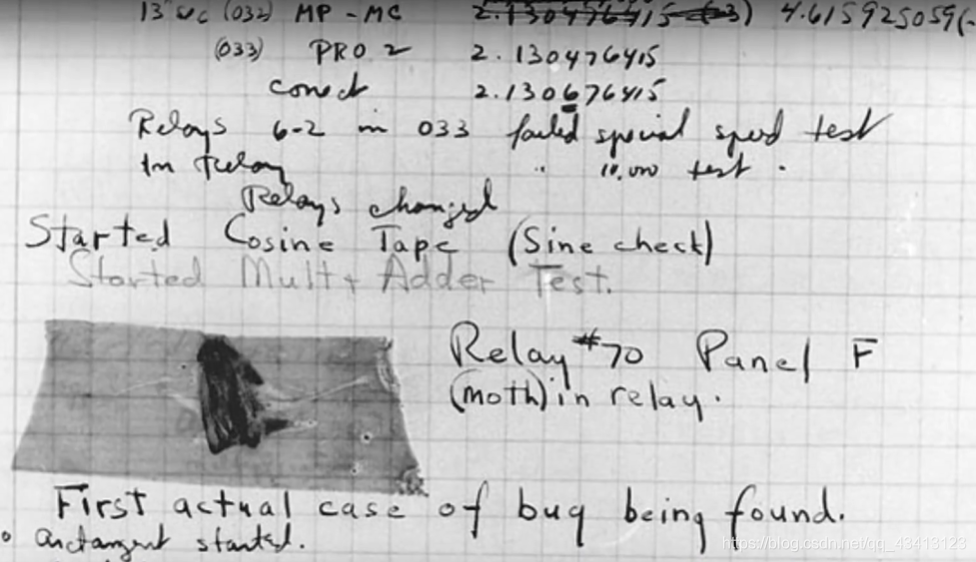 13" sec (032) MP - MC 2.130476415 (-3) 4.615925059(-
(033) PRO 2 2.130476415
conect 2.130676415
Relays 6-2 in 033 failed special speed test
In Relay " 10,000 test .
Relays changed
Started Cosine Tape (Sine check)
Started Mult + Adder Test.
Relay #70 Panel F
(moth) in relay.
First actual case of bug being found.
arctangent started.
https://blog.csdn.net/qq_43413123